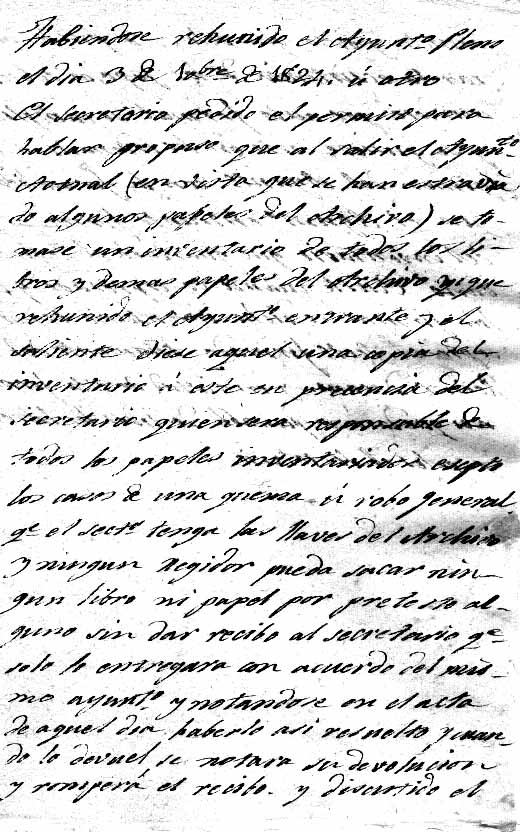 Habiendose rehunido el Ayunto. Pleno
el dia 3 de 1bre. de 1824.
El secretario pedido el permiso para
hablar propuso que al salir el Ayunto.
Actual (en vista que se han estravia
do algunos papeles del Archivo) se to-
mase un inventario de todos los li-
bros y demas papeles del Archivo y que
rehunido el Ayunto. entrante y el
saliente diese aquel una copia del
inventario á este en precencia del
secretario quien sera responsable de
todos los papeles inventariados esepto
los casos de una quema ú robo general
qe. el secto. tenga las llaves del Archivo
y ningun Regidor pueda sacar nin-
gun libro ni papel por pretesto al-
guno sin dar recibo al secretario qe.
solo lo entregara con acuerdo del mis-
mo ayunto. y notandose en el acta
de aquel dia haberlo asi resuelto y cuan-
do lo devuel se notara su devolucion
y romperá el recibo. y discutido el